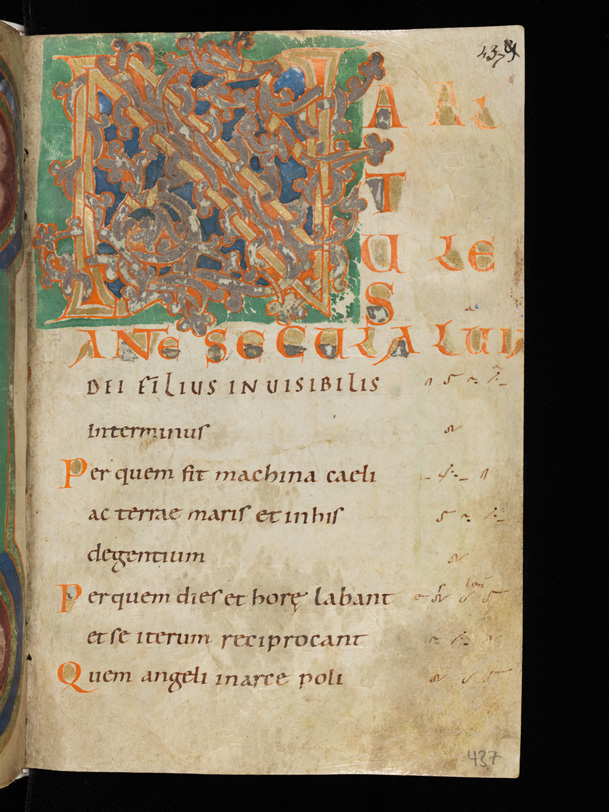 N A AL
T
U LE
S
ANTE SECULA LUI
DEI FILIUS INUISIBILIS
interminus
Per quem fit machina caeli
ac terrae maris et in his
degentium
Per quem dies et horę labant
et se iterum reciprocant
Quem angeli in arce poli
437